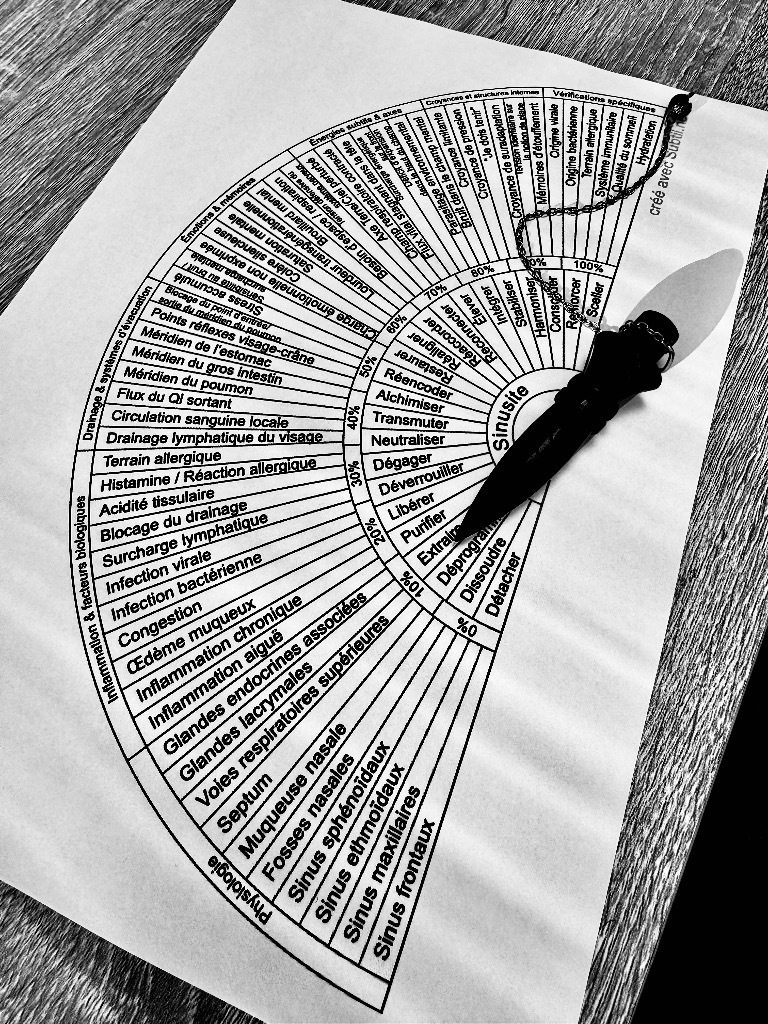 Sinusite
Détacher
Dissoudre
Extraire
Purifier
Libérer
Déverrouiller
Dégager
Neutraliser
Transmuter
Alchimiser
Réencoder
Restaurer
Réaligner
Réaccorder
Reconnecter
Élever
Intégrer
Stabiliser
Harmoniser
Sceller
0%
10%
20%
30%
40%
50%
60%
70%
80%
100%
Physiologie
Sinus frontaux
Sinus maxillaires
Sinus ethmoïdaux
Sinus sphénoïdaux
Fosses nasales
Muqueuse nasale
Septum
Voies respiratoires supérieures
Glandes lacrymales
Glandes endocrines associées
Inflammation & facteurs biologiques
Inflammation aiguë
Inflammation chronique
Œdème muqueux
Congestion
Infection bactérienne
Infection virale
Surcharge lymphatique
Blocage du drainage
Acidité tissulaire
Histamine / Réaction allergique
Terrain allergique
Drainage & systèmes d'évacuation
Drainage lymphatique du visage
Circulation sanguine locale
Flux du QI sortant
Méridien du poumon
Méridien du gros intestin
Méridien de l'estomac
Points réflexes visage-crâne
Blocage du point d'entrée/
sortie du méridien du poumon
Emotions & mémoires
Stress accumulé
Colère silencieuse
Saturation mentale
Charge émotionnelle non exprimée
Lourdeur transgénérationnelle
Brouillard mental
Energies subtils & axes
Besoin d'espace / respiration
Axe Terre/Ciel perturbé
Croyances et structures internes
Passage environnemental
Bruit dans champ mental
Croyance limitante
Croyance de pression
"Je dois tenir"
Croyance de suradaptation
Mémoires d'étouffement
Vérifications spécifiques
Origine virale
Origine bactérienne
Terrain allergique
Système immunitaire
Qualité du sommeil
Hydratation
créé avec Subtil